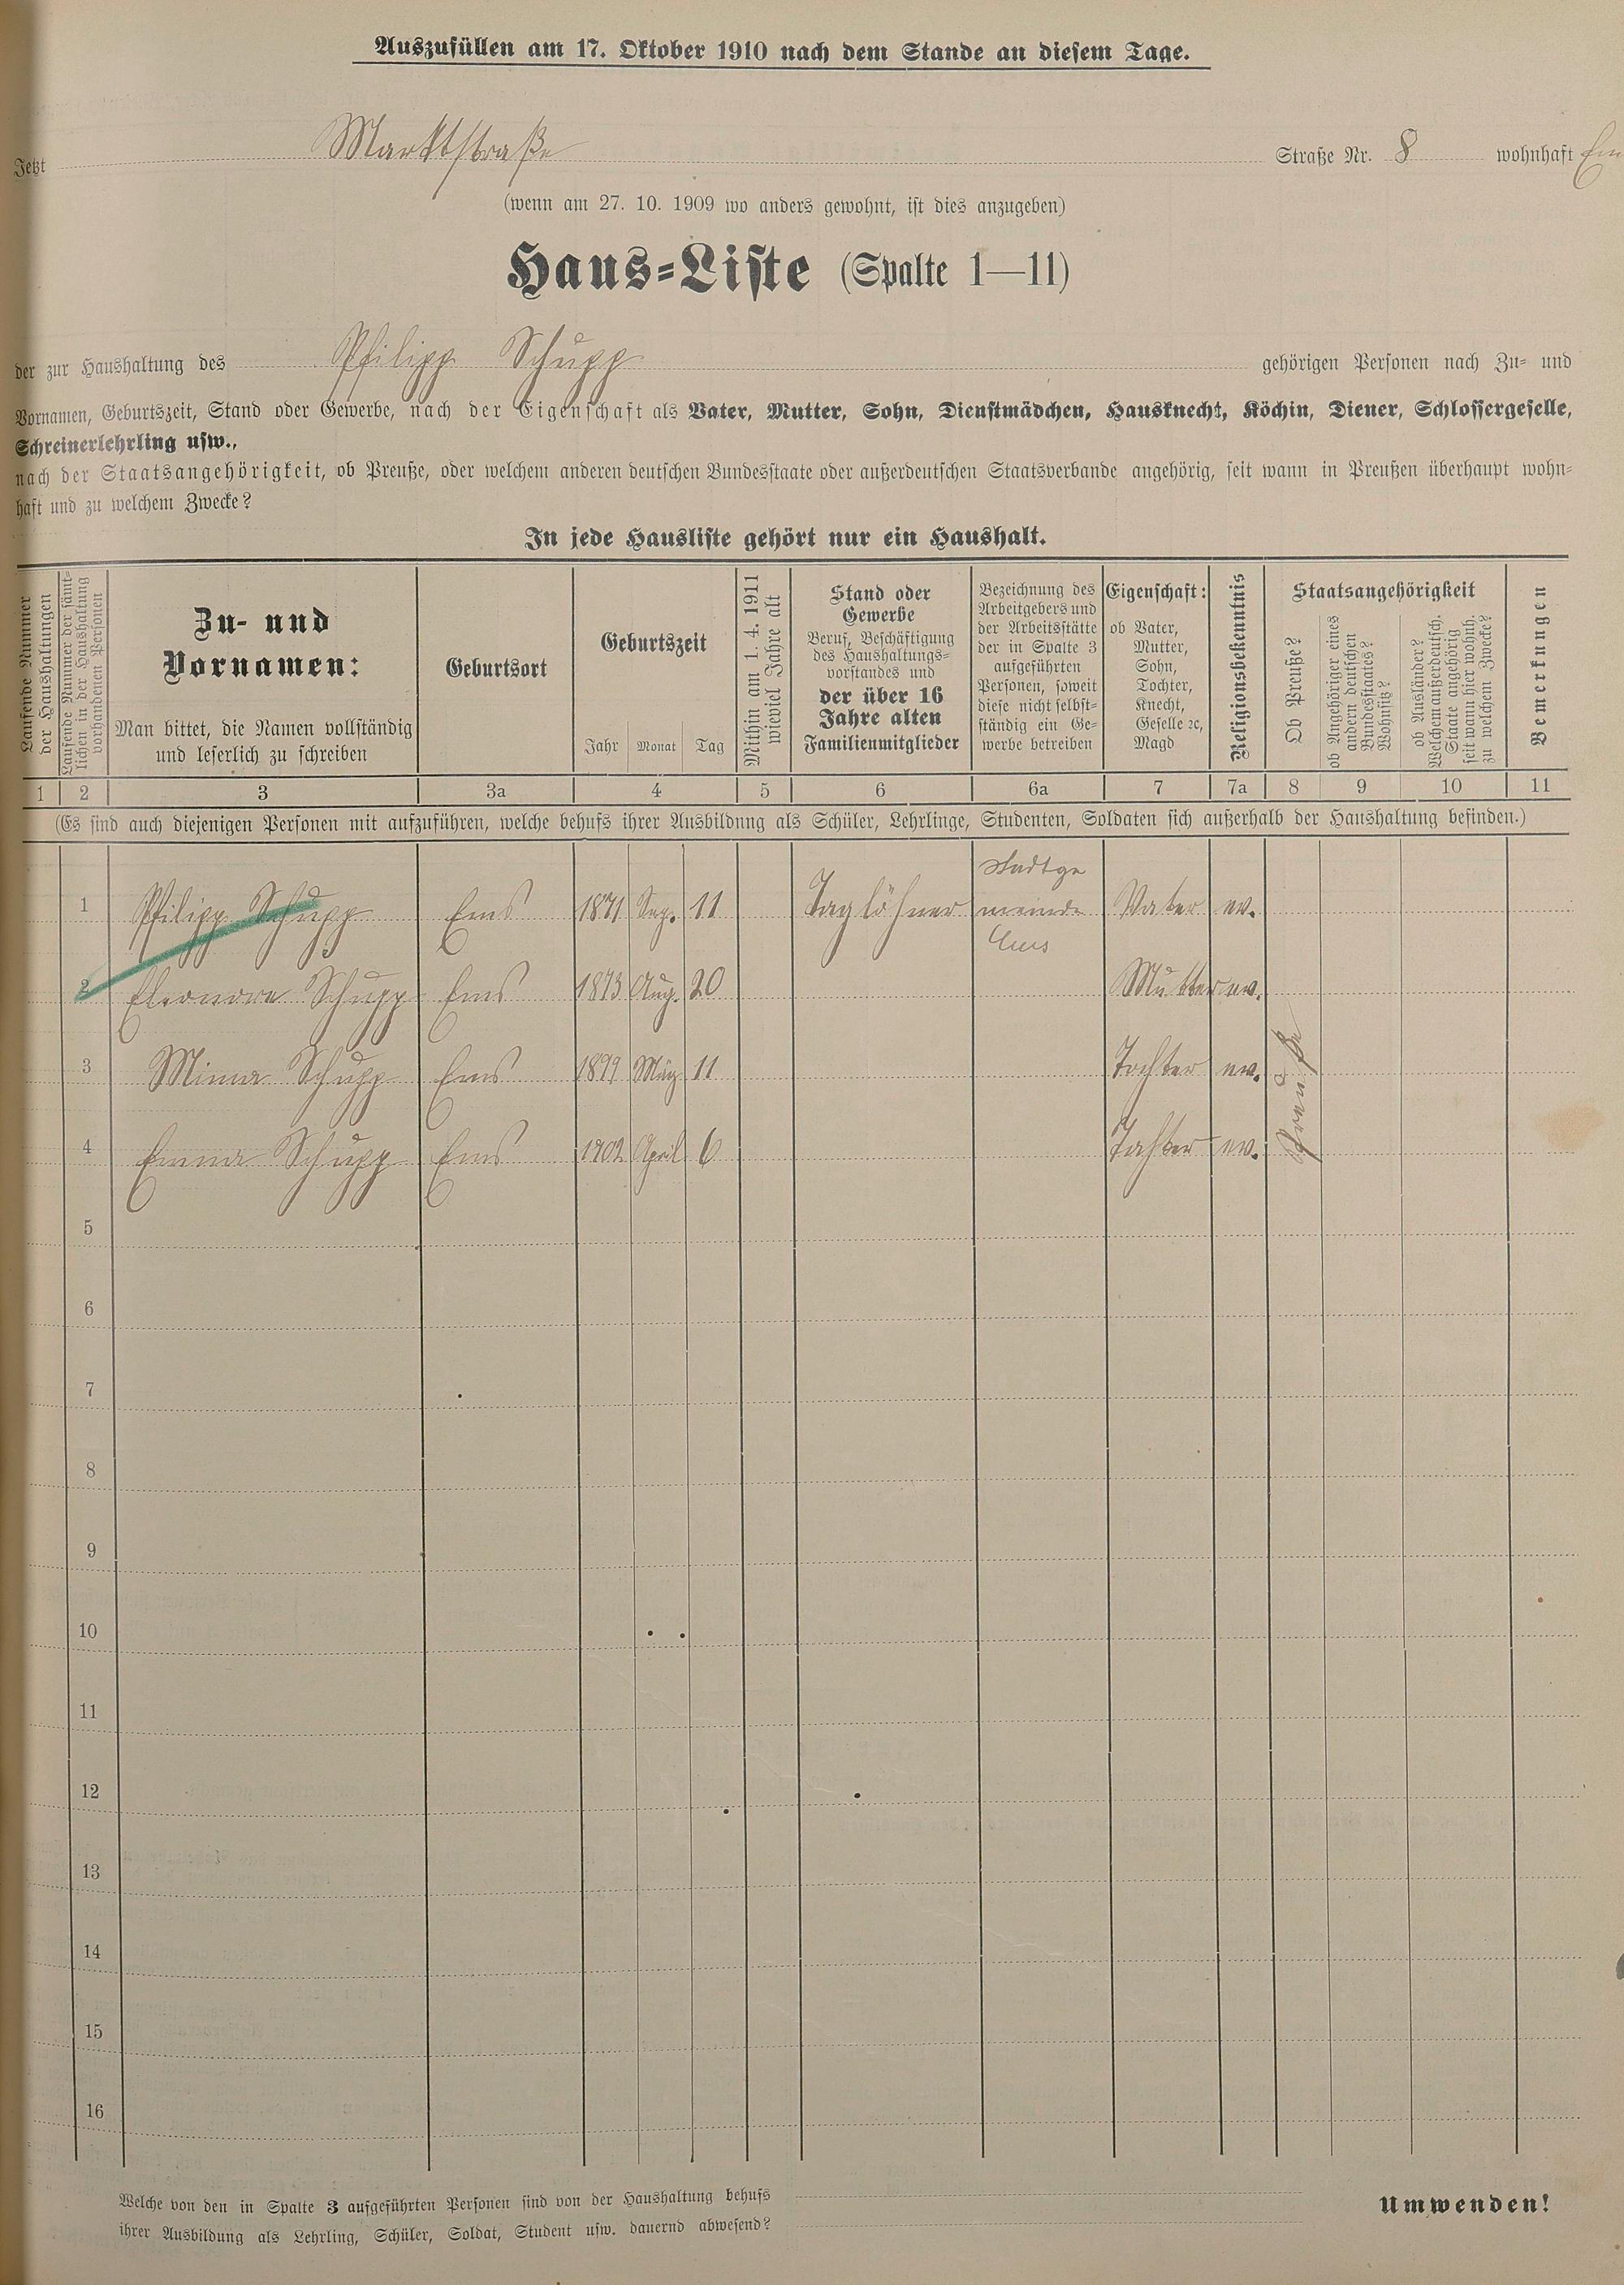 Auszufüllen am 17. Oktober 1910 nach dem Stande an diesem Tage.
Jetzt Marktstraße Straße Nr. 8 wohnhaft Em
(wenn am 27. 10. 1909 wo anders gewohnt, ist dies anzugeben)
Haus-Liste (Spalte 1—11)
der zur Haushaltung des Philipp Schupp gehörigen Personen nach Zu- und
Vornamen, Geburtszeit, Stand oder Gewerbe, nach der Eigenschaft als Vater, Mutter, Sohn, Dienstmädchen, Hausknecht, Köchin, Diener, Schlossergeselle,
Schreinerlehrling usw.,
nach der Staatsangehörigkeit, ob Preuße, oder welchem anderen deutschen Bundesstaate oder außerdeutschen Staatsverbande angehörig, seit wann in Preußen überhaupt wohn-
haft und zu welchem Zwecke?
In jede Hausliste gehört nur ein Haushalt.
Laufende Nummer
der Haushaltungen
Laufende Nummer der sämt-
lichen in der Haushaltung
vorhandenen Personen
Zu- und
Vornamen:
Man bittet, die Namen vollständig
und leserlich zu schreiben
Geburtsort
Geburtszeit
Jahr Monat Tag
Mithin am 1. 4. 1911
wieviel Jahre alt
Stand oder
Gewerbe
Beruf, Beschäftigung
des Haushaltungs-
vorstandes und
der über 16
Jahre alten
Familienmitglieder
Bezeichnung des
Arbeitgebers und
der Arbeitsstätte
der in Spalte 3
aufgeführten
Personen, soweit
diese nicht selbst-
ständig ein Ge-
werbe betreiben
Eigenschaft:
ob Vater,
Mutter,
Sohn,
Tochter,
Knecht,
Geselle ꝛc,
Magd
Religionsbekenntnis
Staatsangehörigkeit
Ob Preuße?
ob Angehöriger eines
andern deutschen
Bundesstaates?
Wohnsitz?
ob Ausländer?
Welchem außerdeutsch.
Staate angehörig
seit wann hier wohnh.
zu welchem Zwecke?
Bemerkungen
1 2 3 3a 4 5 6 6a 7 7a 8 9 10 11
(Es sind auch diejenigen Personen mit aufzuführen, welche behufs ihrer Ausbildung als Schüler, Lehrlinge, Studenten, Soldaten sich außerhalb der Haushaltung befinden.)
Stadtge
1 Philipp Schupp Ems 1871 Sep. 11 Taglöhner meinde Vater ev.
Ems
2 Eleonore Schupp Ems 1873 Aug. 20 Mutter ev.
3 Minna Schupp Ems 1899 März 11 Tochter ev.
4 Emma Schupp Ems 1902 April 6 Tochter ev.
Preuße
5
6
7
8
9
10
11
12
13
14
15
16
Welche von den in Spalte 3 aufgeführten Personen sind von der Haushaltung behufs
ihrer Ausbildung als Lehrling, Schüler, Soldat, Student usw. dauernd abwesend?
Umwenden!